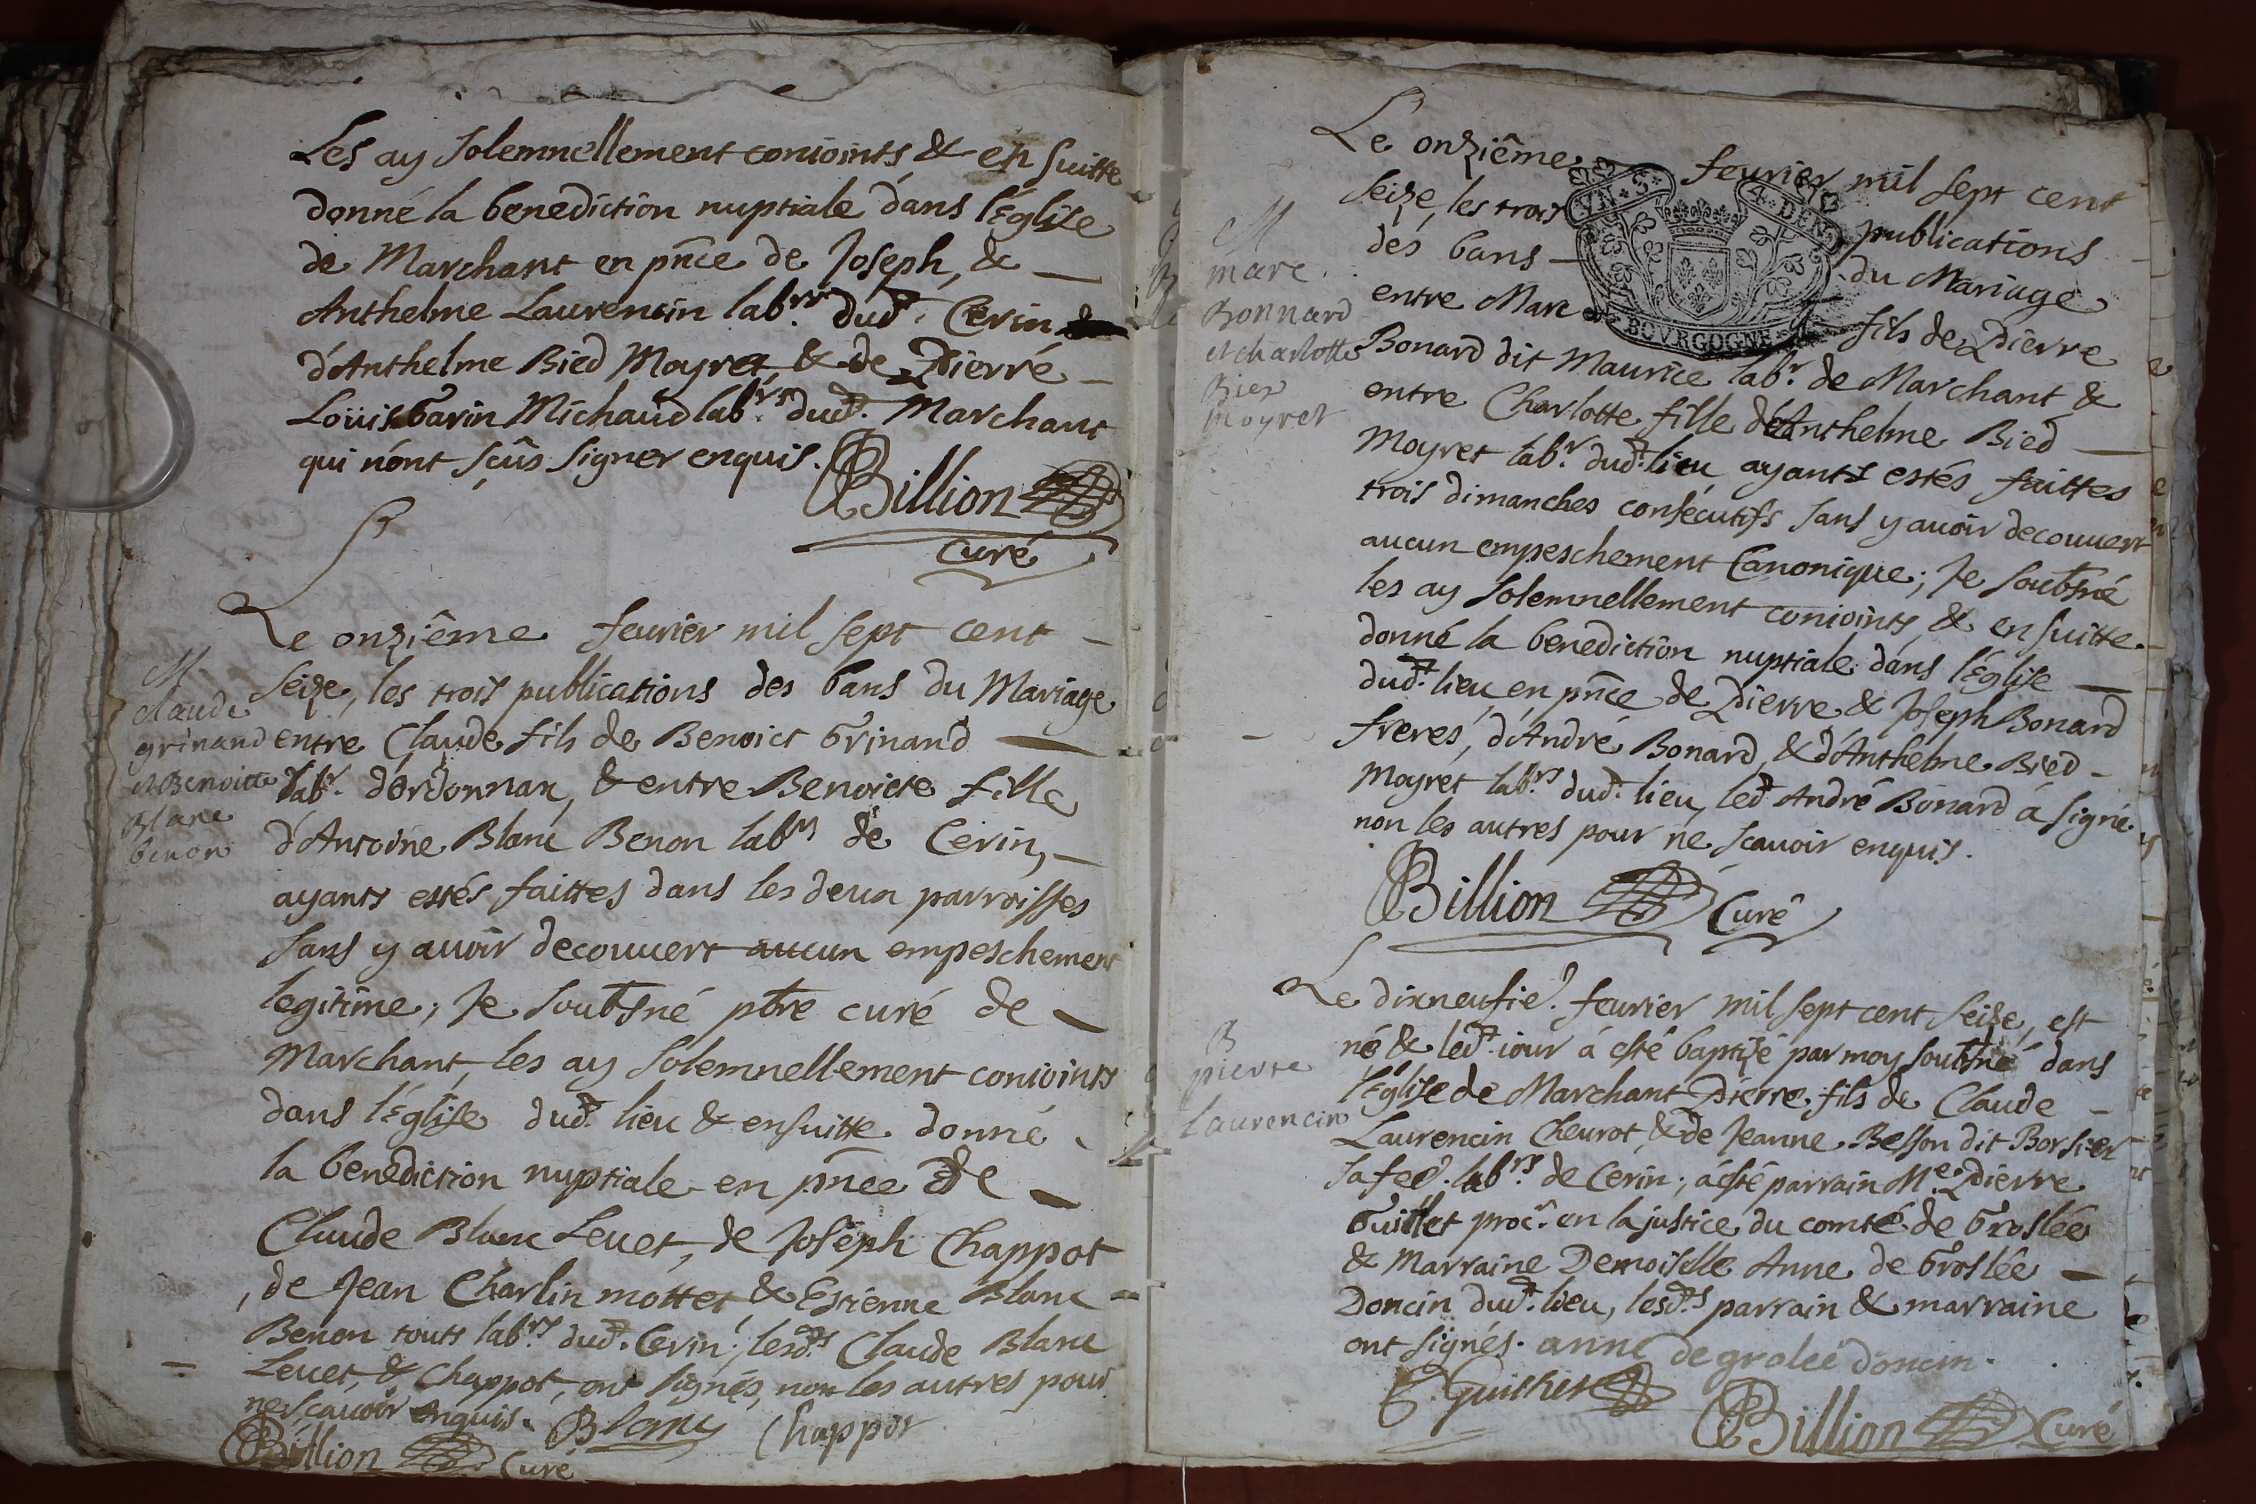 Les ay solemnellement conioints & en suitte
donné la benediction nuptiale dans l'Eglise
de Marchant en pñce de Joseph, &
Anthelme Laurencin labrs dud. Cerin
d'Anthelme Bied Moyret & de Pierre
Loüis Garin Michaud labrs dud. Marchant
qui n'ont sçûs signer enquis.
Billion
curé
Le onziême feurier mil sept cent
seize, les trois publications des bans du Mariage
entre Claude fils de Benoict Grinand
labr. d'ordonnax, & entre Benoicte fille
d'Antoine Blanc Benon labrs de Cerin,
ayants estés faittes dans les deux parroisses
sans y avoir decouuert aucun empeschement
legitime; Je soubsné pbre curé de
Marchant, les ay solemnellement conioints
dans l'Eglise dud. lieu & ensuitte donné
la benediction nuptiale en pñce de
Claude Blanc Leuet, de Joseph Chappot
, de Jean Charlin mottet & Estienne Blanc
Benon touts labrs dud. Cerin; lesds Claude Blanc
Leuet, & Chappot, ont signés, non les autres pour
ne sçauoir enquis. Blanc Chappot
Billion Curé
M
claude
grinand
et Benoitte
Blanc
benon
Le onziême feurier mil sept cent
seize, les trois publications
des bans du Mariage
entre Marc fils de Pierre
VN. S. 4. DEN
BOVRGOGNE
Bonard dit Maurice labr. de Marchant &
entre Charlotte fille d'Anthelme Bied
Moyret labr. dud. lieu ayants estés faittes
trois dimanches consécutifs sans y auoir decouuert
aucun empeschement Canonique; Je soubsné
les ay solemnellement conioints & en suitte
donné la benediction nuptiale dans l'Eglise
dud. lieu en pñce de Pierre & Joseph Bonard
freres, d'André Bonard, & d'Anthelme Bied
Moyret labrs dud. lieu, led. André Bonard á signé
non les autres pour ne scauoir enquis.
Billion Curé
M
marc
Bonnard
et charlotte
Bied
moyret
Le dixneufie. feurier mil sept cent seize, est
né & led. iour á esté baptisé par moy soubsné dans
l'Eglise de Marchant Pierre fils de Claude
Laurencin Cheurot & de Jeanne Besson dit Borsier
sa fee. labrs de Cerin; á esté parrain Me Pierre
Guillet procr. en la justice du comté de Groslée
& Marraine Demoiselle Anne de Groslée
Doncin dud. lieu, lesds parrain & marraine
ont signés. anne de grolee doncin.
Guilliet
Billion Curé
B
pierre
Laurencin